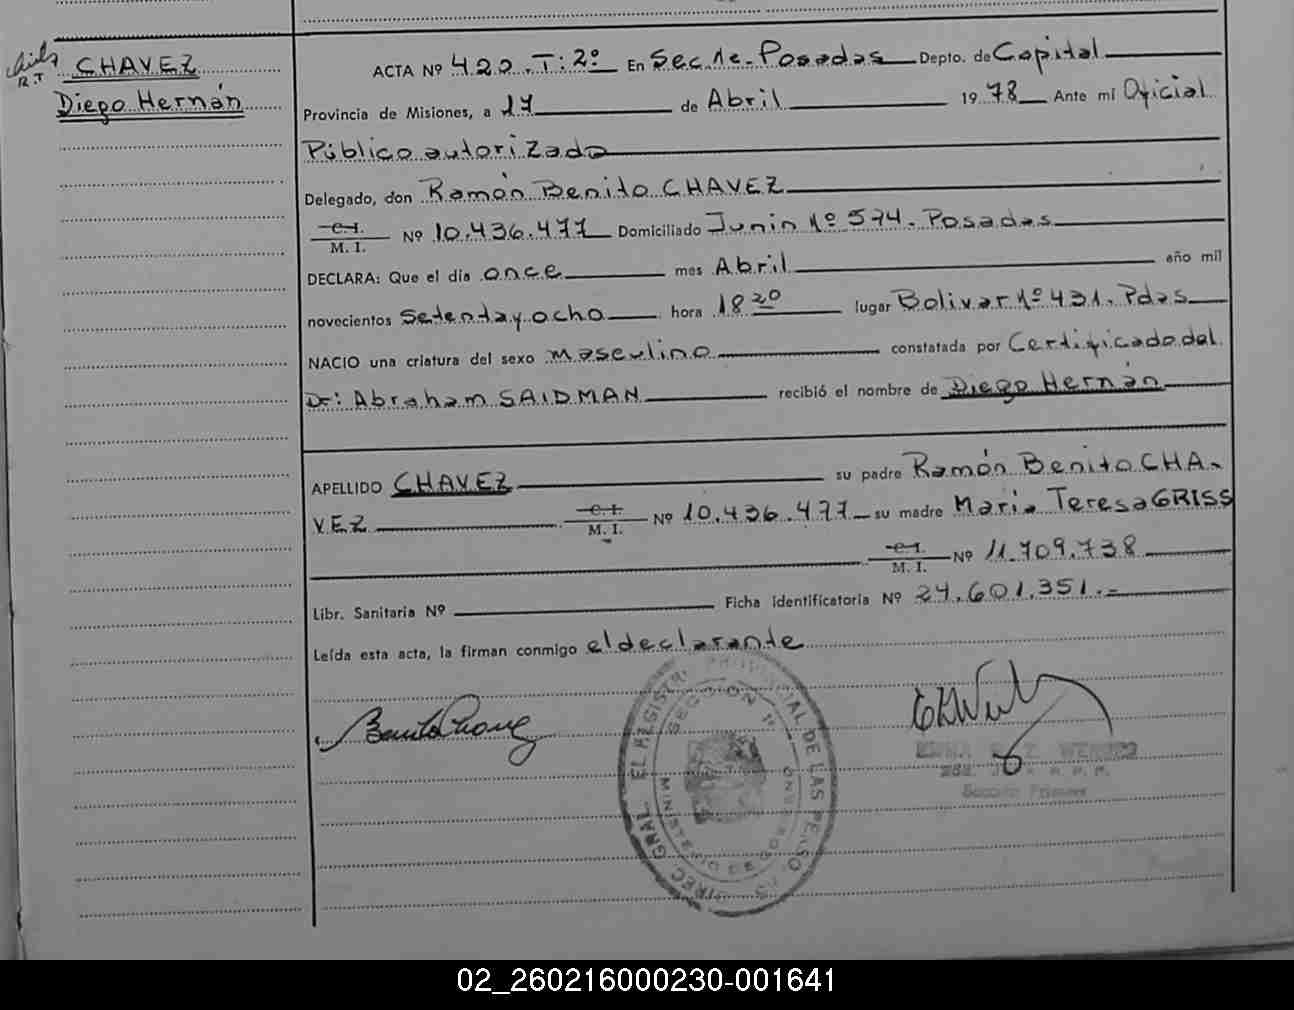 CHAVEZ
R.T
Diego Hernán
ACTA Nº 420. T: 2º En Sec. 1a. Posadas Depto. de Capital
Provincia de Misiones, a 17 de Abril 1978 Ante mi Oficial
Público autorizado
Delegado, don Ramón Benito CHAVEZ
C. I.
M. I. Nº 10.436.477 Domiciliado Junin Nº 574. Posadas
DECLARA: Que el día once mes Abril año mil
novecientos setenta y ocho hora 18 20 lugar Bolivar Nº 431. Pdas
NACIO una criatura del sexo masculino constatada por Certificado del
Dr: Abraham SAIDMAN recibió el nombre de Diego Hernán
APELLIDO CHAVEZ su padre Ramón Benito CHA-
VEZ C. I. M. I. Nº 10.436.477 su madre Maria Teresa GRISS
C. I.
M. I. Nº 11.709.738
Libr. Sanitaria Nº Ficha identificatoria Nº 24.601.351.-
Leída esta acta, la firman conmigo el declarante
Benito Chavez
DIREC. GRAL. EL REGISTRO PROVINCIAL DE LAS PERSONAS
SECCION 1ª
MINISTERIO DE GOBIERNO
Sección Primera
02_260216000230-001641